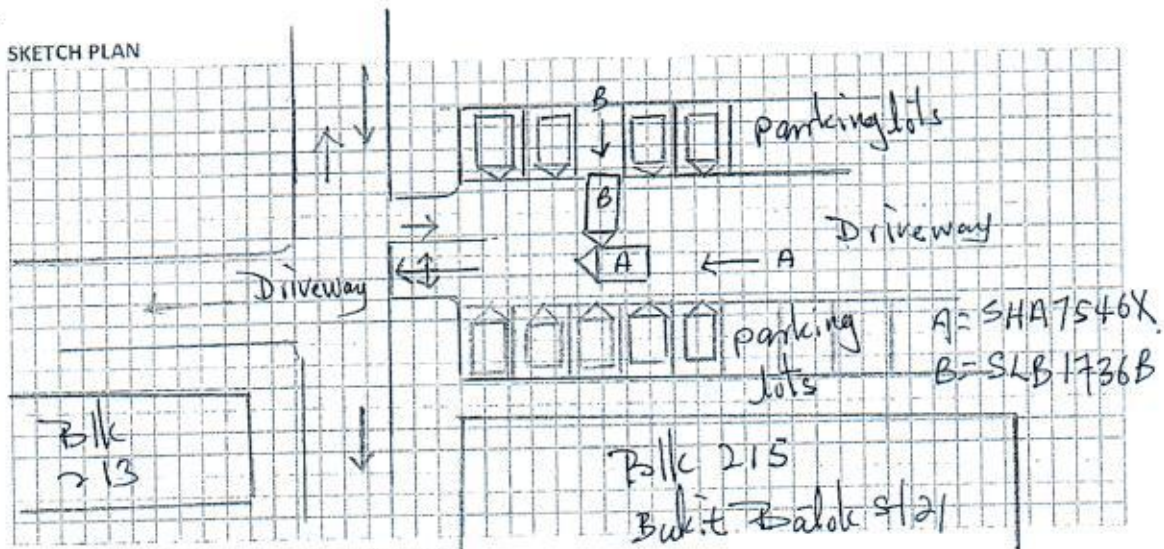 SKETCH PLAN
B
parking lots
B
Driveway
A
A
Driveway
parking
lots
A= SHA7546X
B= SLB1736B
Blk
213
Blk 215
Bukit Batok St 21